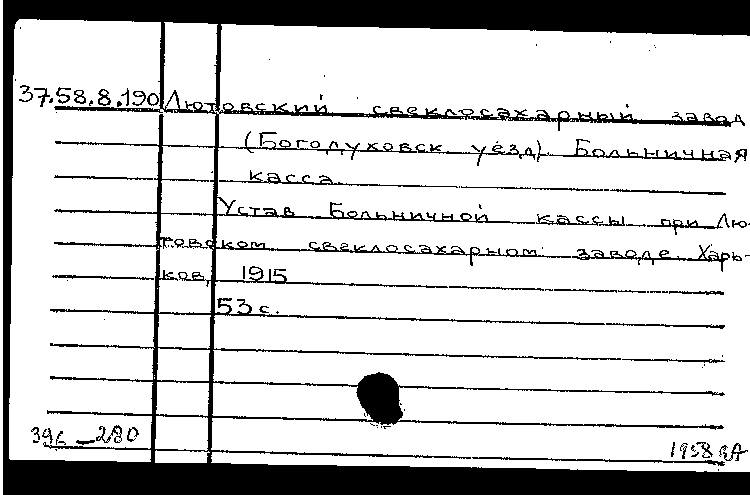 37.58.8.190 Лютовский свеклосахарный завод
(Богодуховск. уезд). Больничная
касса.
Устав Больничной кассы при Лю-
товском свеклосахарном заводе. Харь-
ков, 1915
53 с.
280
1958